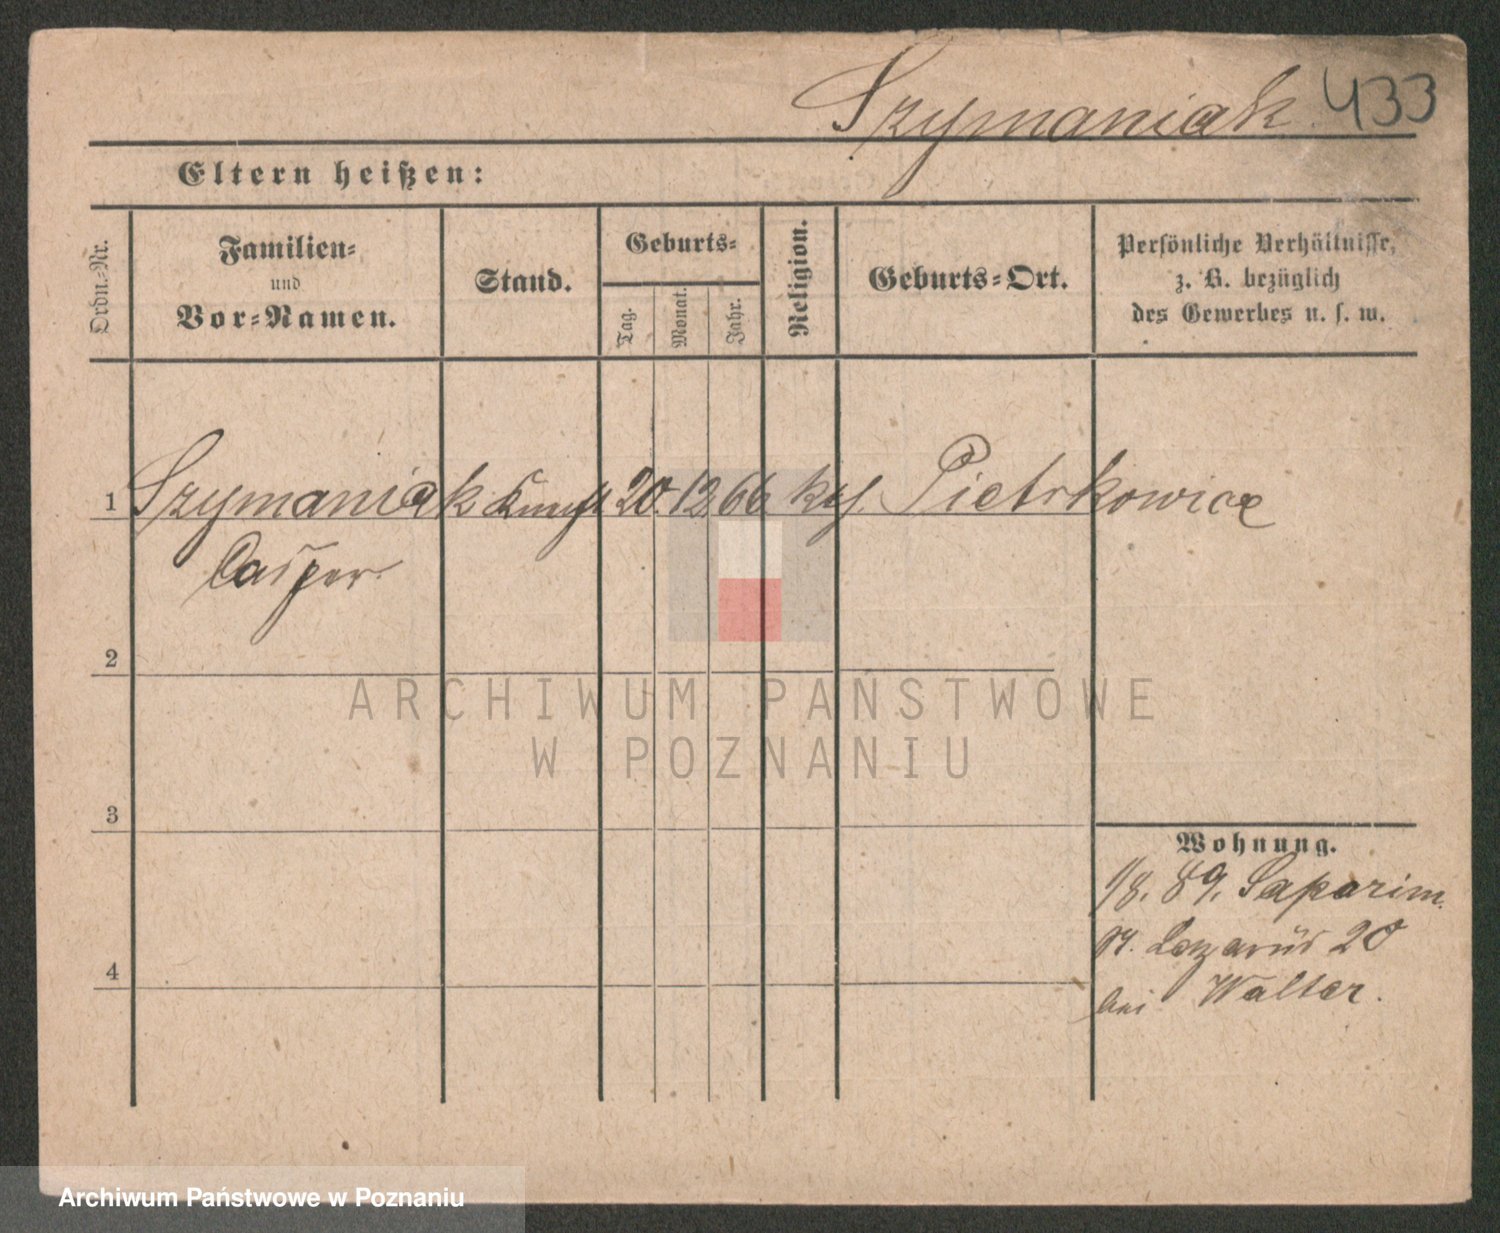 Szymaniak 433
Eltern heißen:
Ordn.-Nr.
Familien-
und
Vor-Namen.
Stand.
Geburts-
Tag.
Monat.
Jahr.
Religion.
Geburts-Ort.
Persönliche Verhältnisse,
z. B. bezüglich
des Gewerbes u. s. w.
1 Szymaniak Knecht 20. 12. 66 kth. Pietrkowice
Casper
2
3
4
Wohnung.
1/8. 89.
St. Lazarus 20
bei Walter.
ARCHIWUM PAŃSTWOWE
W POZNANIU
Archiwum Państwowe w Poznaniu